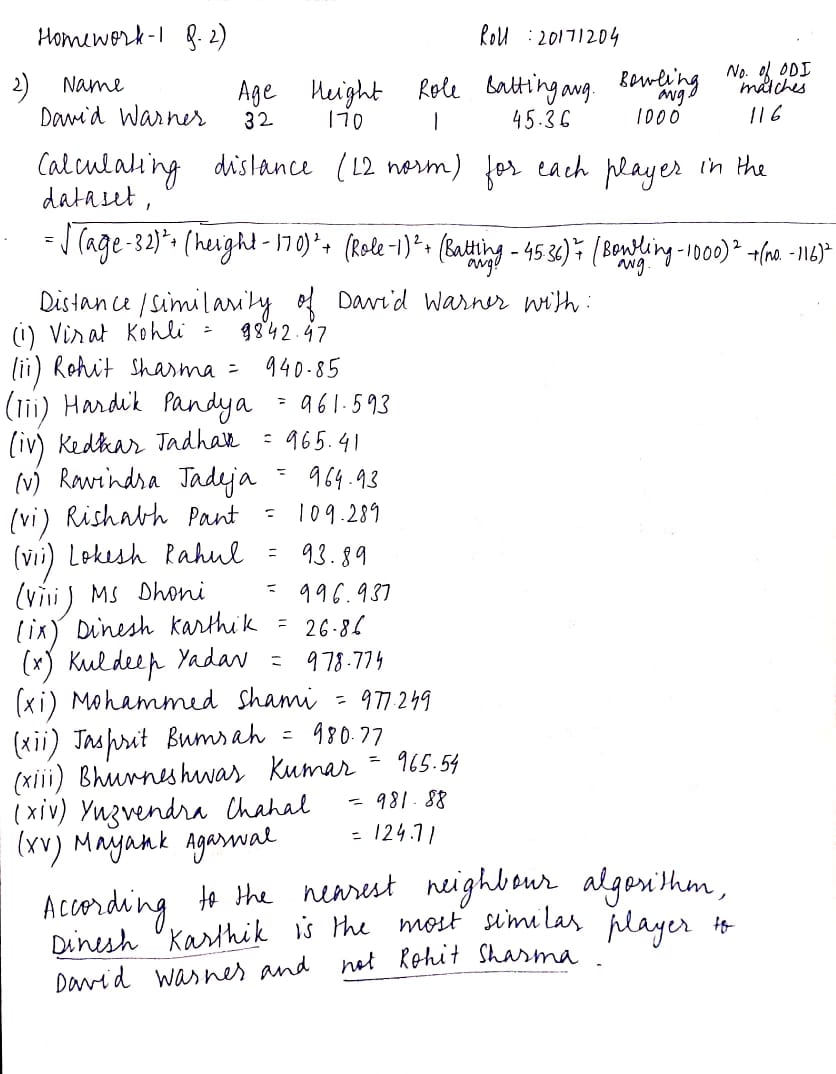 Homework-1 Q.2) Roll : 20171204
2) Name Age Height Role Batting avg. Bowling avg. No. of ODI matches
David Warner 32 170 1 45.36 1000 116
Calculating distance (L2 norm) for each player in the
dataset,
= √(age-32)²+ (height-170)²+ (Role-1)²+ (Batting avg. - 45.36)²+ (Bowling avg. -1000)² +(no. -116)²
Distance/similarity of David Warner with:
(i) Virat Kohli = 9842.47
(ii) Rohit Sharma = 940.85
(iii) Hardik Pandya = 961.593
(iv) Kedhar Jadhav = 965.41
(v) Ravindra Jadeja = 964.93
(vi) Rishabh Pant = 109.289
(vii) Lokesh Rahul = 93.89
(viii) MS Dhoni = 996.937
(ix) Dinesh Karthik = 26.86
(x) Kuldeep Yadav = 978.774
(xi) Mohammed Shami = 977.249
(xii) Jasprit Bumrah = 980.77
(xiii) Bhuvneshwar Kumar = 965.54
(xiv) Yuzvendra Chahal = 981.88
(xv) Mayank Agarwal = 124.71
According to the nearest neighbour algorithm,
Dinesh Karthik is the most similar player to
David Warner and not Rohit Sharma.